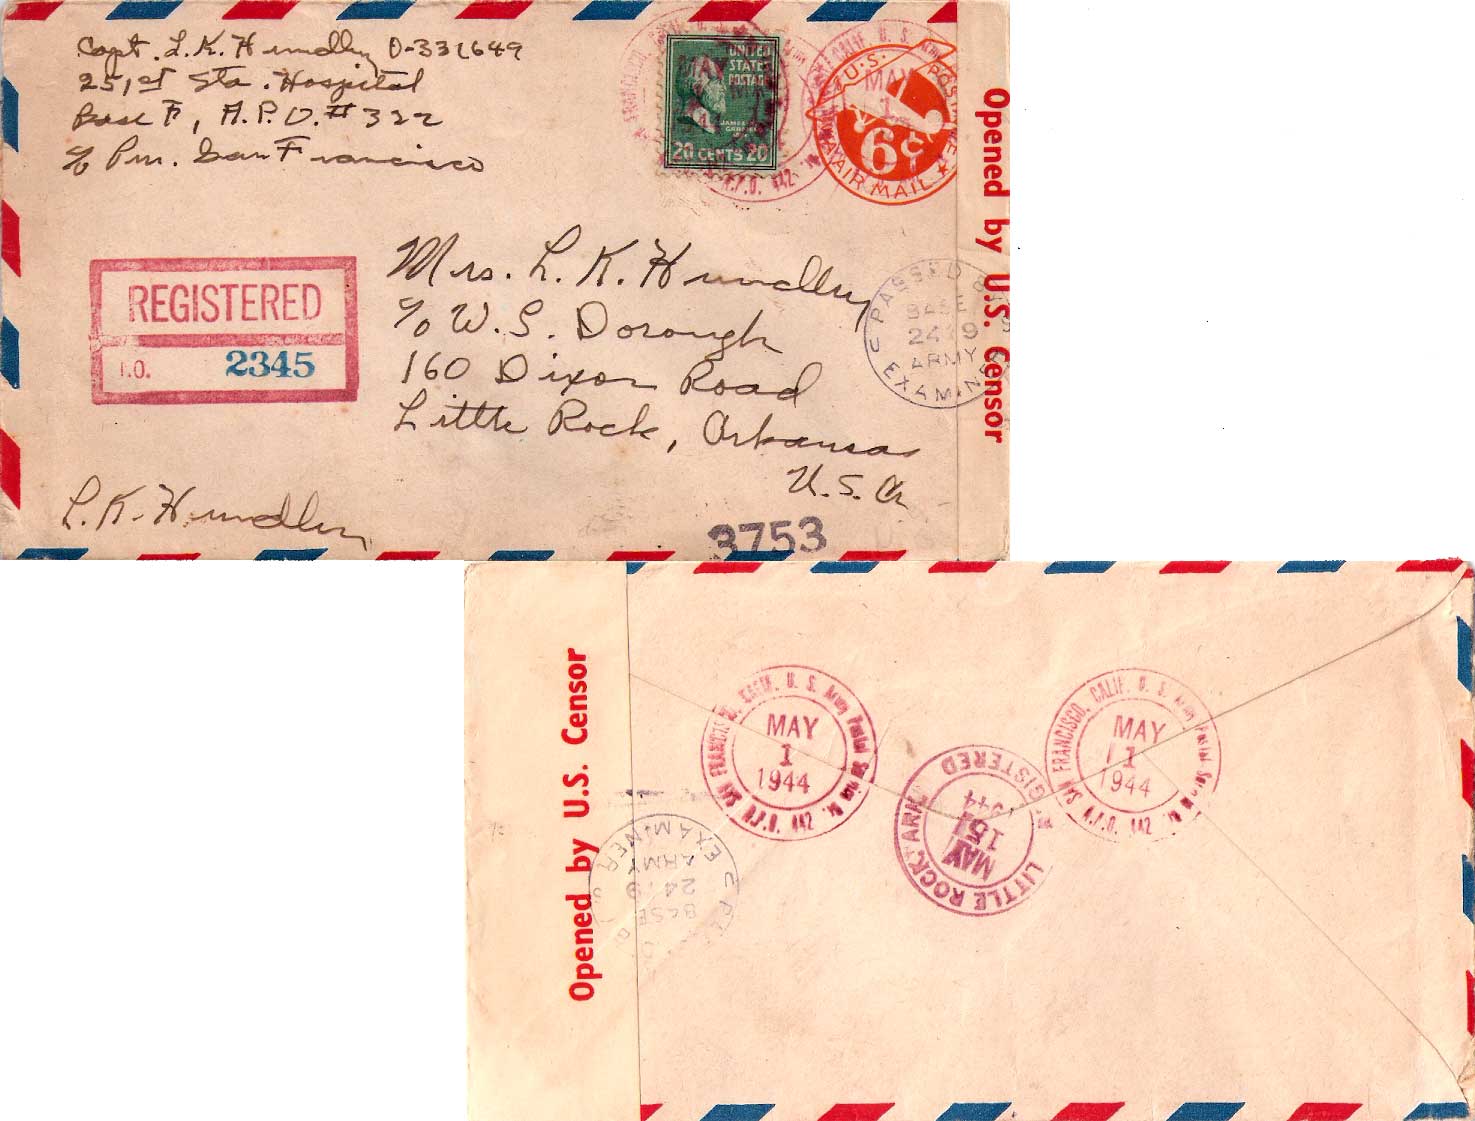 Capt. L. K. Hundley O-331649
251st Sta. Hospital
Base F, A.P.O. # 322
c/o Pm. San Francisco
UNITED
STATES
POSTAGE
JAMES A.
GARFIELD
20 CENTS 20
U.S. POSTAGE
6¢
AIR MAIL
MAY
1
A.P.O. 442
Opened by U.S. Censor
REGISTERED
I.O. 2345
Mrs. L. K. Hundley
c/o W. S. Dorough
160 Dixon Road
Little Rock, Arkansas
U. S. A
PASSED
BASE
2419
ARMY
EXAMINER
L. K. Hundley
3753
Opened by U.S. Censor
SAN FRANCISCO, CALIF. U. S. Army Postal Service
MAY
1
1944
A.P.O. 442
SAN FRANCISCO, CALIF. U. S. Army Postal Service
MAY
1
1944
A.P.O. 442
LITTLE ROCK, ARK.
REGISTERED
MAY
15
1944
BASE
2419
ARMY
EXAMINER